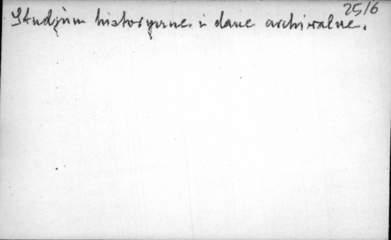 25/6
Studjum historyczne i dane archiwalne.